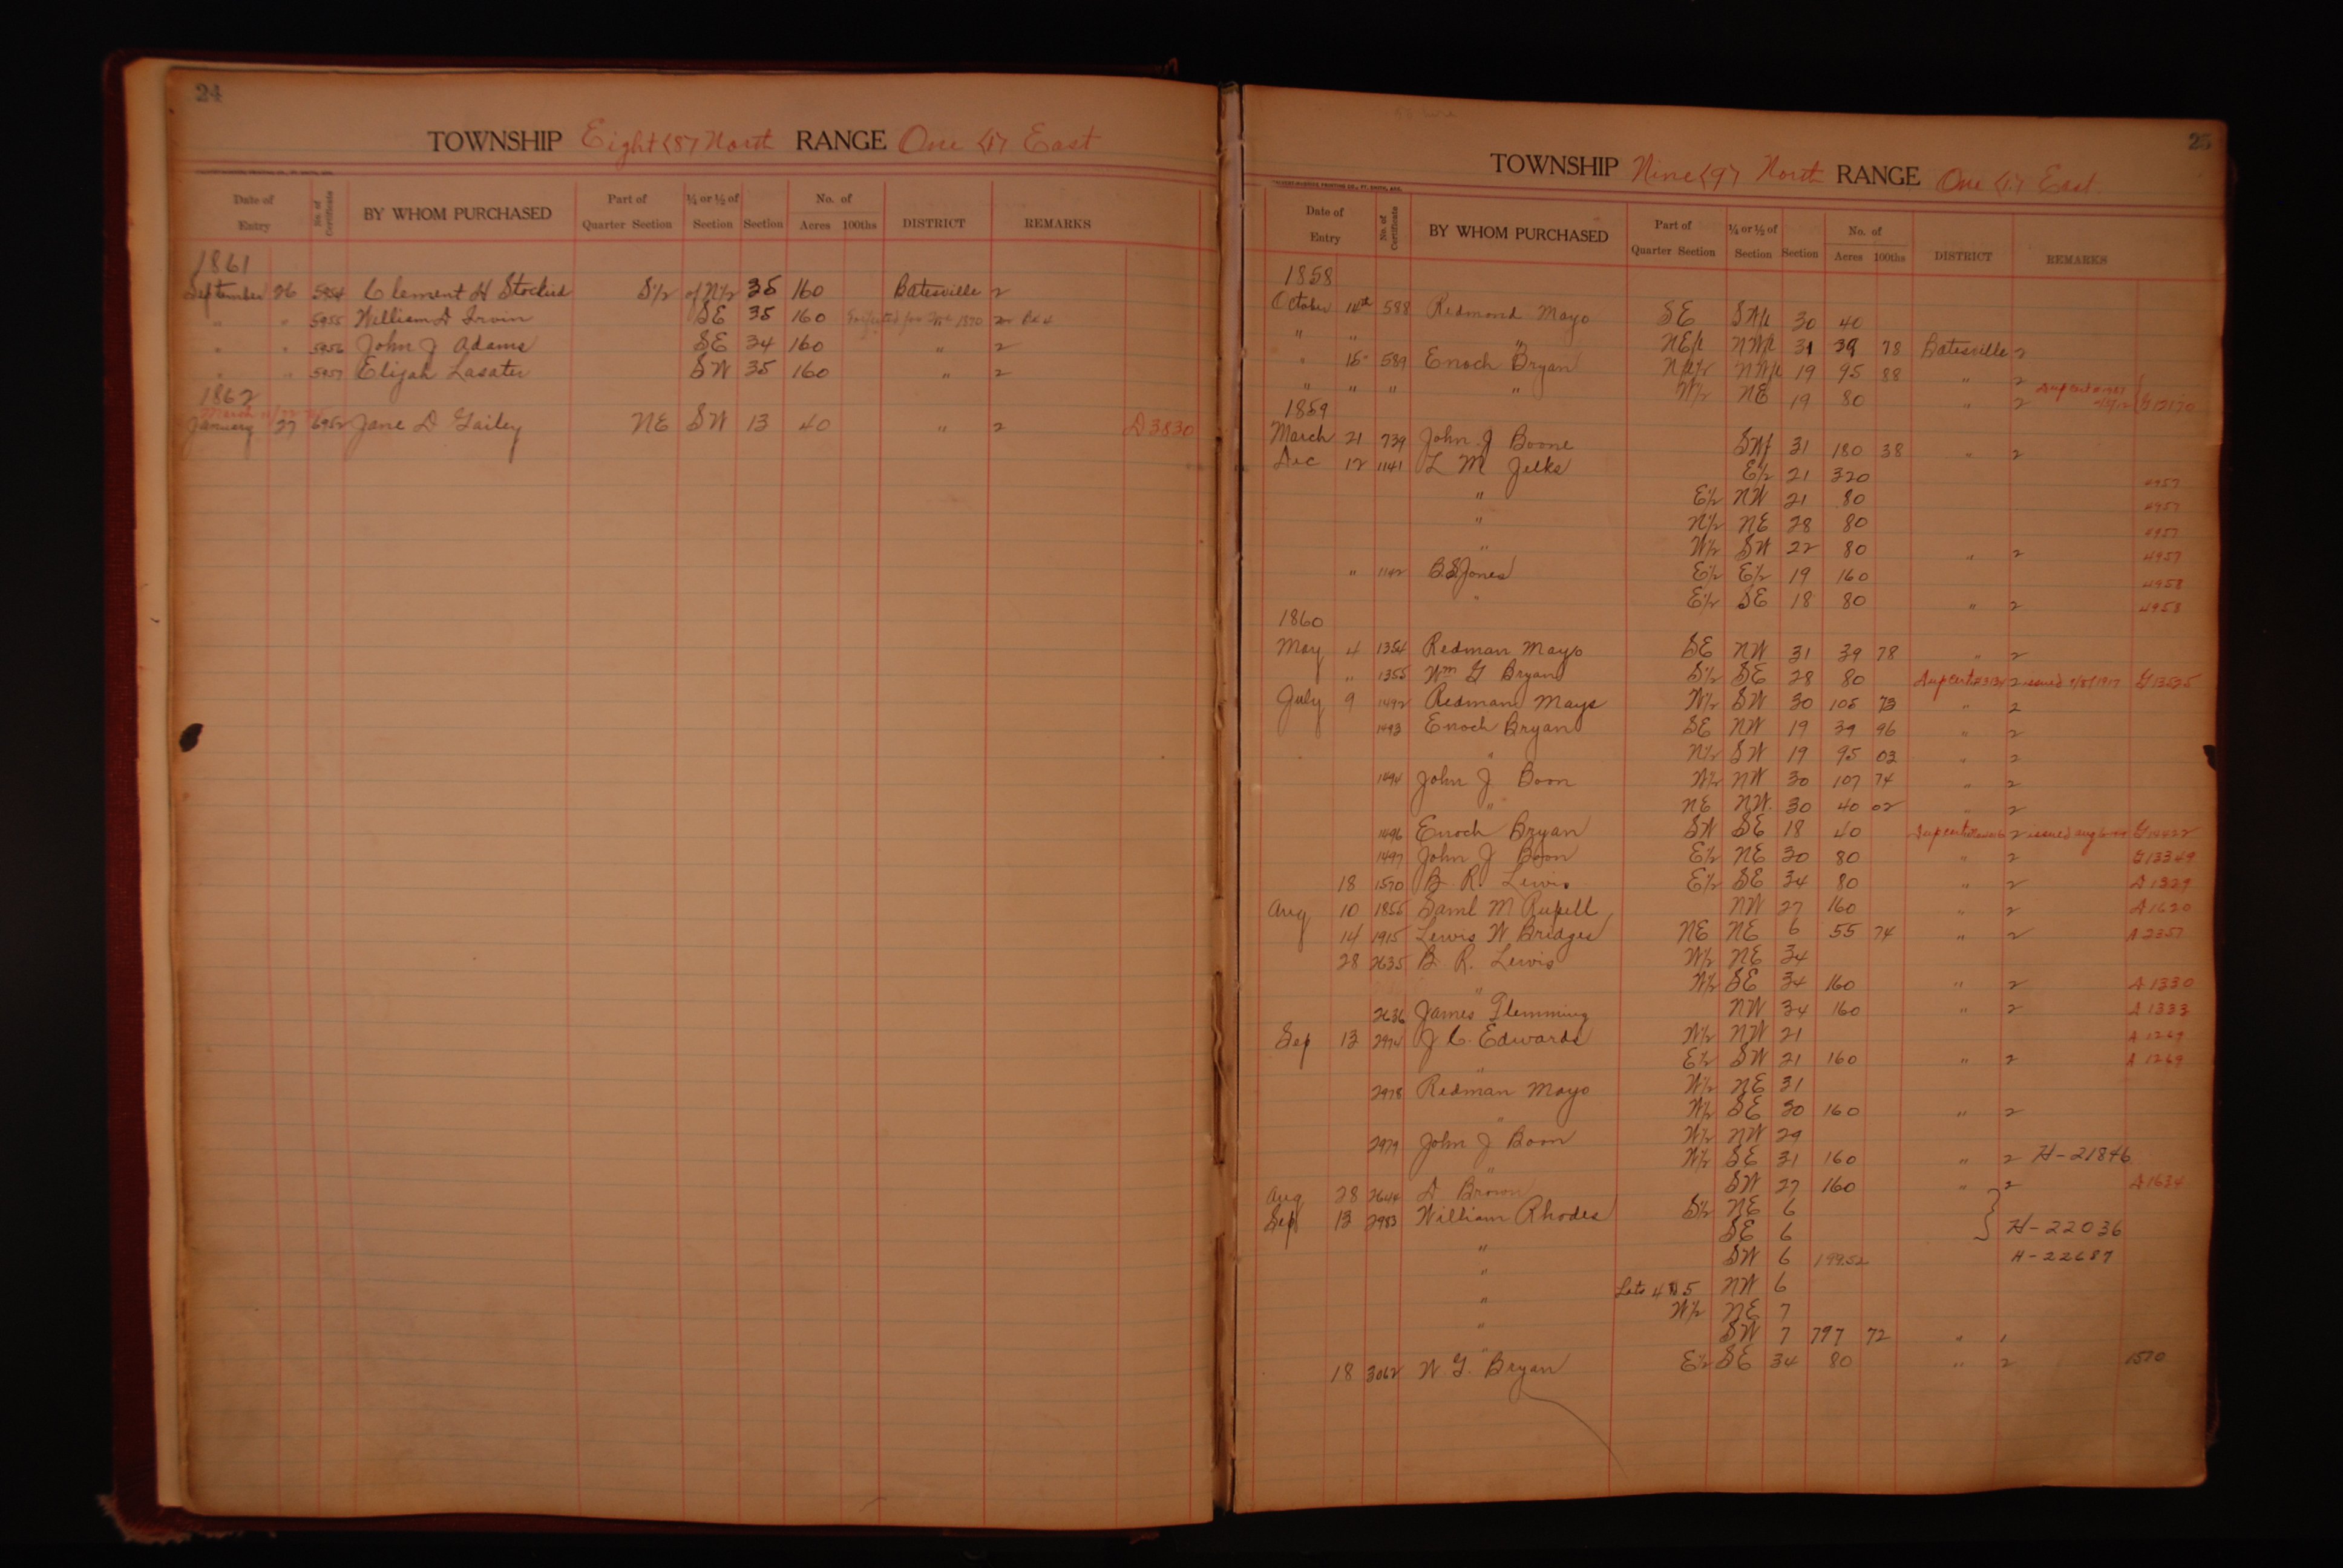 24
TOWNSHIP Eight (8) North RANGE One (1) East
Date of Entry No. of Certificate BY WHOM PURCHASED Part of Quarter Section ¼ or ½ of Section Section No. of Acres 100ths DISTRICT REMARKS
1861
September 26 5954 Clement H S½ of N½ 35 160 Batesville 2
" " 5955 William D Irvin SE 35 160 1870
" " 5956 John J Adams SE 34 160 " 2
" " 5957 Elijah Lasater SW 35 160 " 2
1862
March
January 27 6952 Jane D Gailey NE SW 13 40 " 2 A 3830
25
TOWNSHIP Nine (9) North RANGE One (1) East.
Date of Entry No. of Certificate BY WHOM PURCHASED Part of Quarter Section ¼ or ½ of Section Section No. of Acres 100ths DISTRICT REMARKS
1858
October 14th 588 Redmond Mayo SE 30 40
" " " 31 39 78 Batesville 2
" 15 589 Enoch Bryan 19 95 88 " 2
" " " " W½ NE 19 80 " 2 G 12170
1859
March 21 739 John J Boone 31 180 38 " 2
Dec 12 1141 L M Jelks E½ 21 320 4957
" E½ NW 21 80 4957
" N½ NE 28 80 4957
" W½ SW 22 80 " 2 4957
" 1142 B.S. Jones E½ E½ 19 160 4958
" E½ SE 18 80 " 2 4958
1860
May 4 1354 Redman Mayo SE NW 31 39 78 " 2
" 1355 Wm G Bryan S½ SE 28 80 2 issued 1917 G 13525
July 9 1492 Redman Mayo W½ SW 30 105 73 " 2
1493 Enoch Bryan SE NW 19 39 96 " 2
" N½ SW 19 95 03 " 2
1494 John J Boon W½ NW 30 107 74 " 2
" NE NW. 30 40 02 " 2
1496 Enoch Bryan SW SE 18 40 2 issued aug
1497 John J Boon E½ NE 30 80 " 2 G 13349
18 1570 B. R. Lewis E½ SE 34 80 " 2 A 1329
Aug 10 1855 Saml M NW 27 160 " 2 A 1620
14 1915 Lewis W Bridges NE NE 6 55 74 " 2 A 2357
28 2635 B. R. Lewis W½ NE 34
" W½ SE 34 160 " 2 A 1330
2636 James Flemming NW 34 160 " 2 A 1333
Sep 13 2974 J C. Edwards W½ NW 21 A 1269
" E½ SW 21 160 " 2 A 1269
2978 Redman Mayo W½ NE 31
" W½ SE 30 160 " 2
2979 John J Boon W½ NW 29
" W½ SE 31 160 " 2 H-21846
Aug 28 2644 D Brown SW 27 160 " 2 A 1634
Sep 13 2983 William Rhodes S½ NE 6
" SE 6 H-22036
" SW 6 199.52 H-22687
" Lots 4 & 5 NW 6
" W½ NE 7
" SW 7 797 72 "
18 3062 W. G. Bryan E½ SE 34 80 " 2 1570